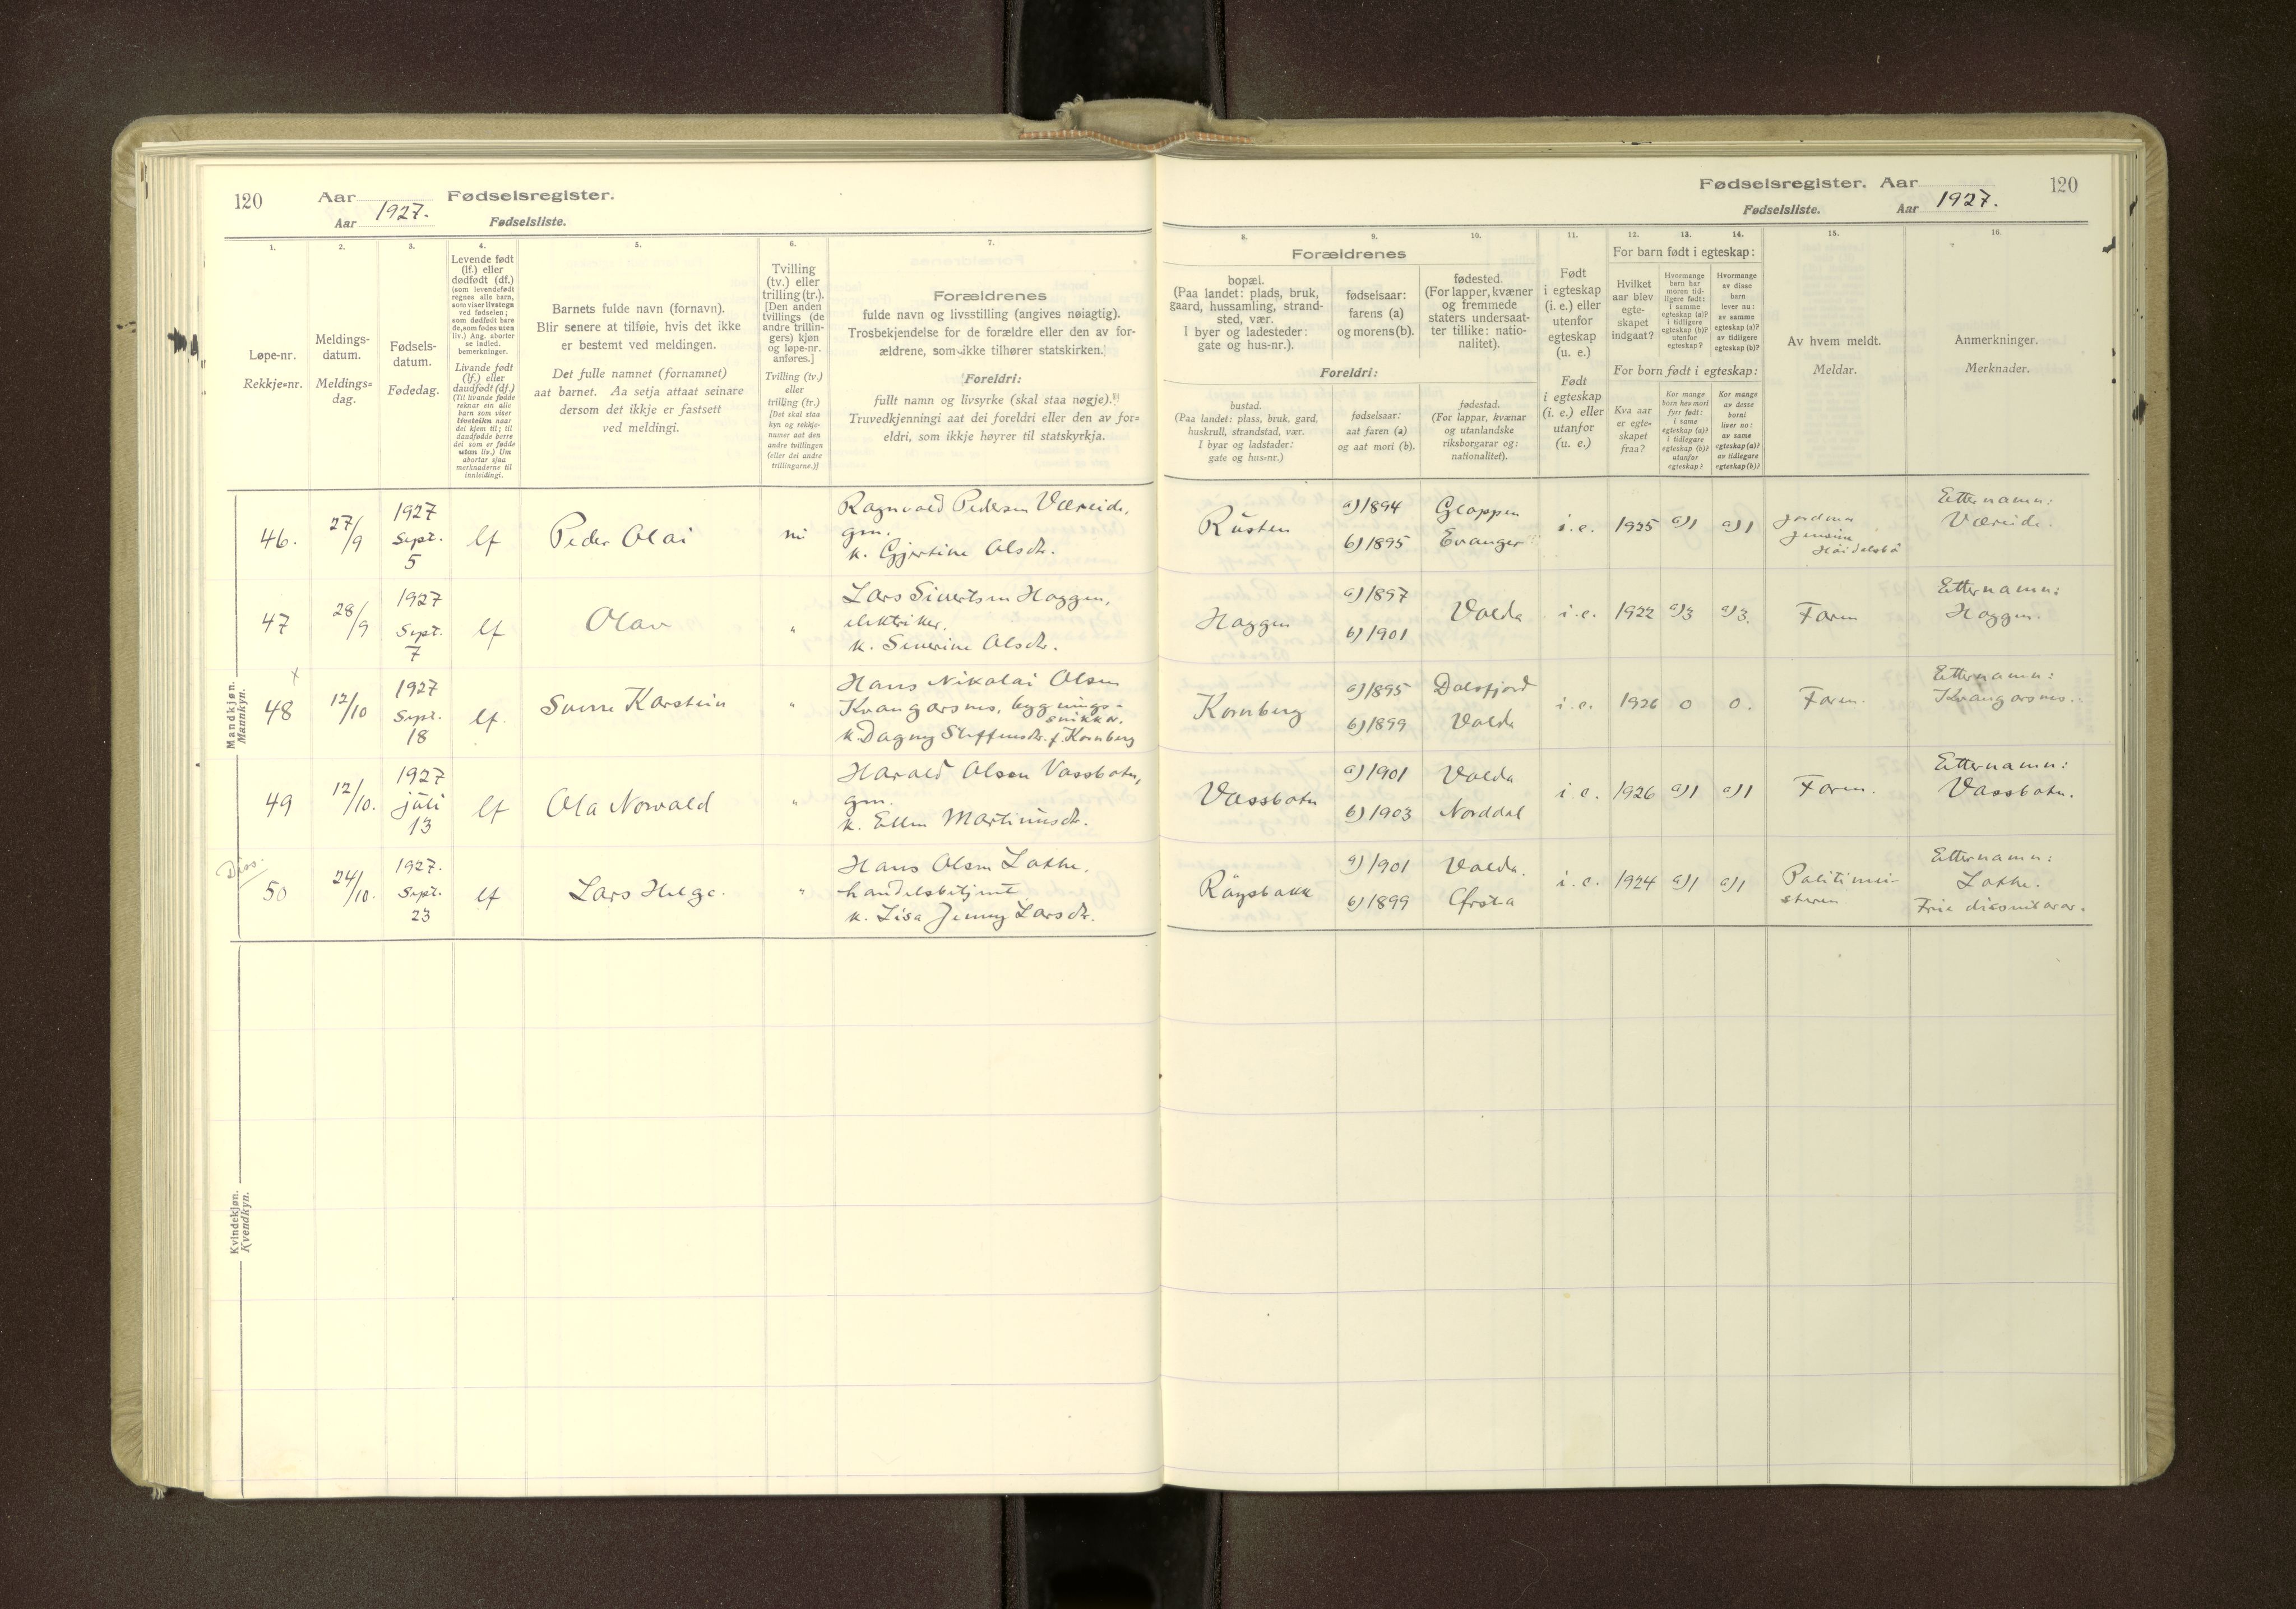 120 Aar Fødselsregister.
Aar 1927. Fødselsliste.
Fødselsregister. Aar 120
Fødselsliste. Aar 1927.
1. 2. 3. 4. 5. 6. 7.
Løpe-nr.
Rekkje=nr.
Meldings-
datum.
Meldings=
dag.
Fødsels-
datum.
Fødedag.
Levende født
(lf.) eller
dødfødt (df.)
(som levendefødt
regnes alle barn,
som viser livstegn
ved fødselen;
som dødfødt bare
de, som fødes uten
liv.) Ang. aborter
se indled.
bemerkninger.
Livande født
(lf.) eller
daudfødt (df.)
(Til livande fødde
reknar ein alle
barn som viser
livsteikn naar
dei kjem til; til
daudfødde berre
dei som er fødde
utan liv.) Um
abortar sjaa
merknaderne til
innleidingi.
Barnets fulde navn (fornavn).
Blir senere at tilføie, hvis det ikke
er bestemt ved meldingen.
Det fulle namnet (fornamnet)
aat barnet. Aa setja attaat seinare
dersom det ikkje er fastsett
ved meldingi.
Tvilling
(tv.) eller
trilling (tr.).
[Den anden
tvillings (de
andre trillin-
gers) kjøn
og løpe-nr.
anføres.]
Tvilling (tv.)
eller
trilling (tr.)
[Det skal staa
kyn og rekkje-
numer aat den
andre tvillingen
(eller dei andre
trillingarne.)]
Forældrenes
fulde navn og livsstilling (angives nøiagtig).
Trosbekjendelse for de forældre eller den av for-
ældrene, som ikke tilhører statskirken.
Foreldri:
fullt namn og livsyrke (skal staa nøgje).
Truvedkjenningi aat dei foreldri eller den av for=
eldri, som ikkje høyrer til statskyrkja.
8. 9. 10. 11. 12. 13. 14. 15. 16.
Forældrenes
bopæl.
(Paa landet: plads, bruk,
gaard, hussamling, strand-
sted, vær.
I byer og ladesteder:
gate og hus-nr.).
fødselsaar:
farens (a)
og morens (b).
fødested.
(For lapper, kvæner
og fremmede
staters undersaat-
ter tillike: natio-
nalitet).
Foreldri:
bustad.
(Paa landet: plass, bruk, gard,
huskrull, strandstad, vær.
I byar og ladstader:
gate og hus=nr.)
fødselsaar:
aat faren (a)
og aat mori (b).
fødestad.
(For lappar, kvænar
og utanlandske
riksborgarar og:
nationalitet).
Født
i egteskap
(i. e.) eller
utenfor
egteskap
(u. e.)
Født
i egteskap
(i. e.) eller
utanfor
(u. e.)
For barn født i egteskap:
Hvilket
aar blev
egte-
skapet
indgaat?
Hvormange
barn har
moren tid-
ligere født:
i samme
egteskap (a)?
i tidligere
egteskap (b)?
utenfor
egteskap?
Hvormange
av disse
barn
lever nu:
av samme
egteskap (a)?
av tidligere
egteskap (b)?
For born født i egteskap:
Kva aar
er egte-
skapet
fraa?
Kor mange
born hev mori
fyrr født:
i same
egteskap (a)?
i tidlegare
egteskap (b)?
utanfor
egteskap?
Kor mange
av desse
borni
liver no:
av same
egteskap (a)?
av tidlegare
egteskap (b)?
Av hvem meldt.
Meldar.
Anmerkninger.
Merknader.
Mandkjøn.
Mannkyn.
46. 27/9 1927 Sept. 5 lf Peder Olai nei
Ragnvald Pedersen Væreide,
gm.
k. Gjertine Olsdr.
Rusten a) 1894 Gloppen
b) 1895 Evanger
i. e. 1925 a) 1 a) 1
Jordmor
Etternamn:
Væreide.
47 28/9 1927 Sept. 7 lf Olav "
Lars Sivertsen Haggen,
elektriker.
k. Severine Olsdr.
Haggen a) 1897
b) 1901 Volda
i. e. 1922 a) 3 a) 3. Faren
Etternamn:
Haggen.
x
48 12/10 1927 Sept. 18 lf. Sverre Karstein "
Hans Nikolai Olsen
Kvangarsnes, bygnings-
snikkar.
k. Dagny Steffensdr. f. Kornberg
Kornberg a) 1895 Dalsfjord
b) 1899 Volda
i. e. 1926 0 0. Faren.
Etternamn:
Kvangarsnes.
49 12/10. 1927 juli 13 lf Ola Norvald "
Harald Olsen Vassbotn,
gm.
k. Ellen Martinusdr.
Vassbotn a) 1901 Volda
b) 1903 Norddal
i. e. 1926 a) 1 a) 1 Faren.
Etternamn:
Vassbotn.
Diss.
50 24/10. 1927. Sept. 23 lf Lars Helge. "
Hans Olsen Lothe,
handelsbetjent
k. Lisa Jenny Larsdr.
Røysbakk a) 1901 Volda.
b) 1899 Ørsta
i. e. 1924 a) 1 a) 1
Politimei-
steren
Etternamn:
Lothe.
Frie dissentarar.
Kvindekjøn.
Kvendkyn.